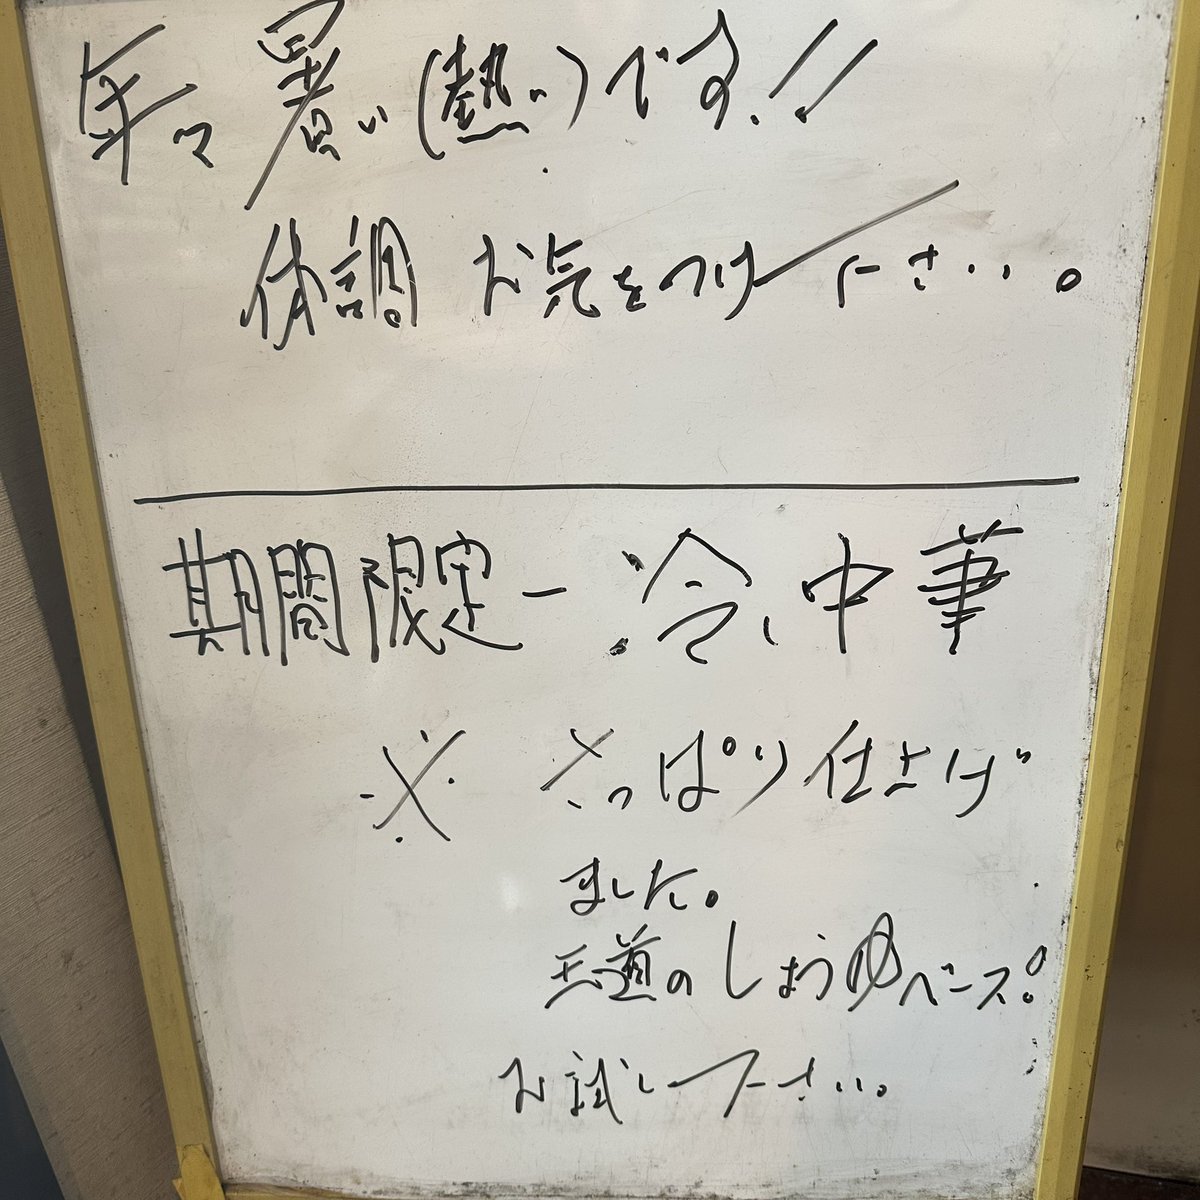 年々暑い(熱い)です!!
体調お気をつけ下さい。
期間限定ー冷し中華
※ さっぱり仕上げ
ました。
王道のしょうゆベース!
お試し下さい。